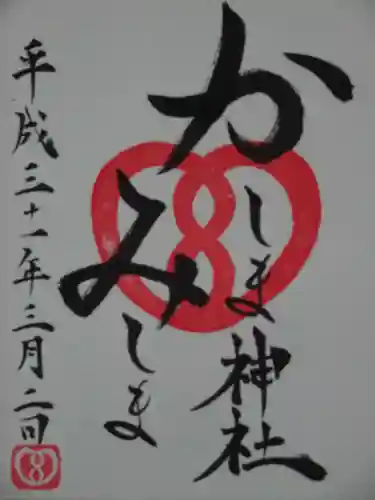 かしま神社
みしま
平成三十一年三月二日